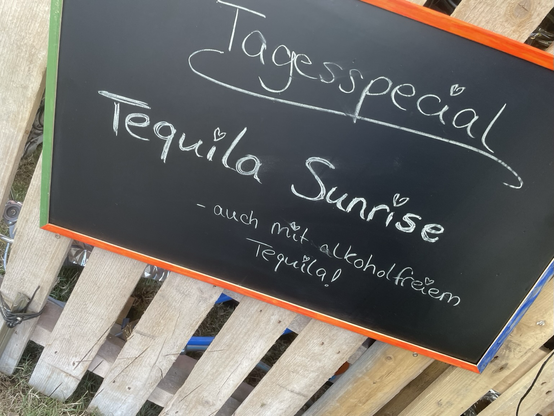 Tagesspecial
Tequila Sunrise
- auch mit alkoholfreiem
Tequila!